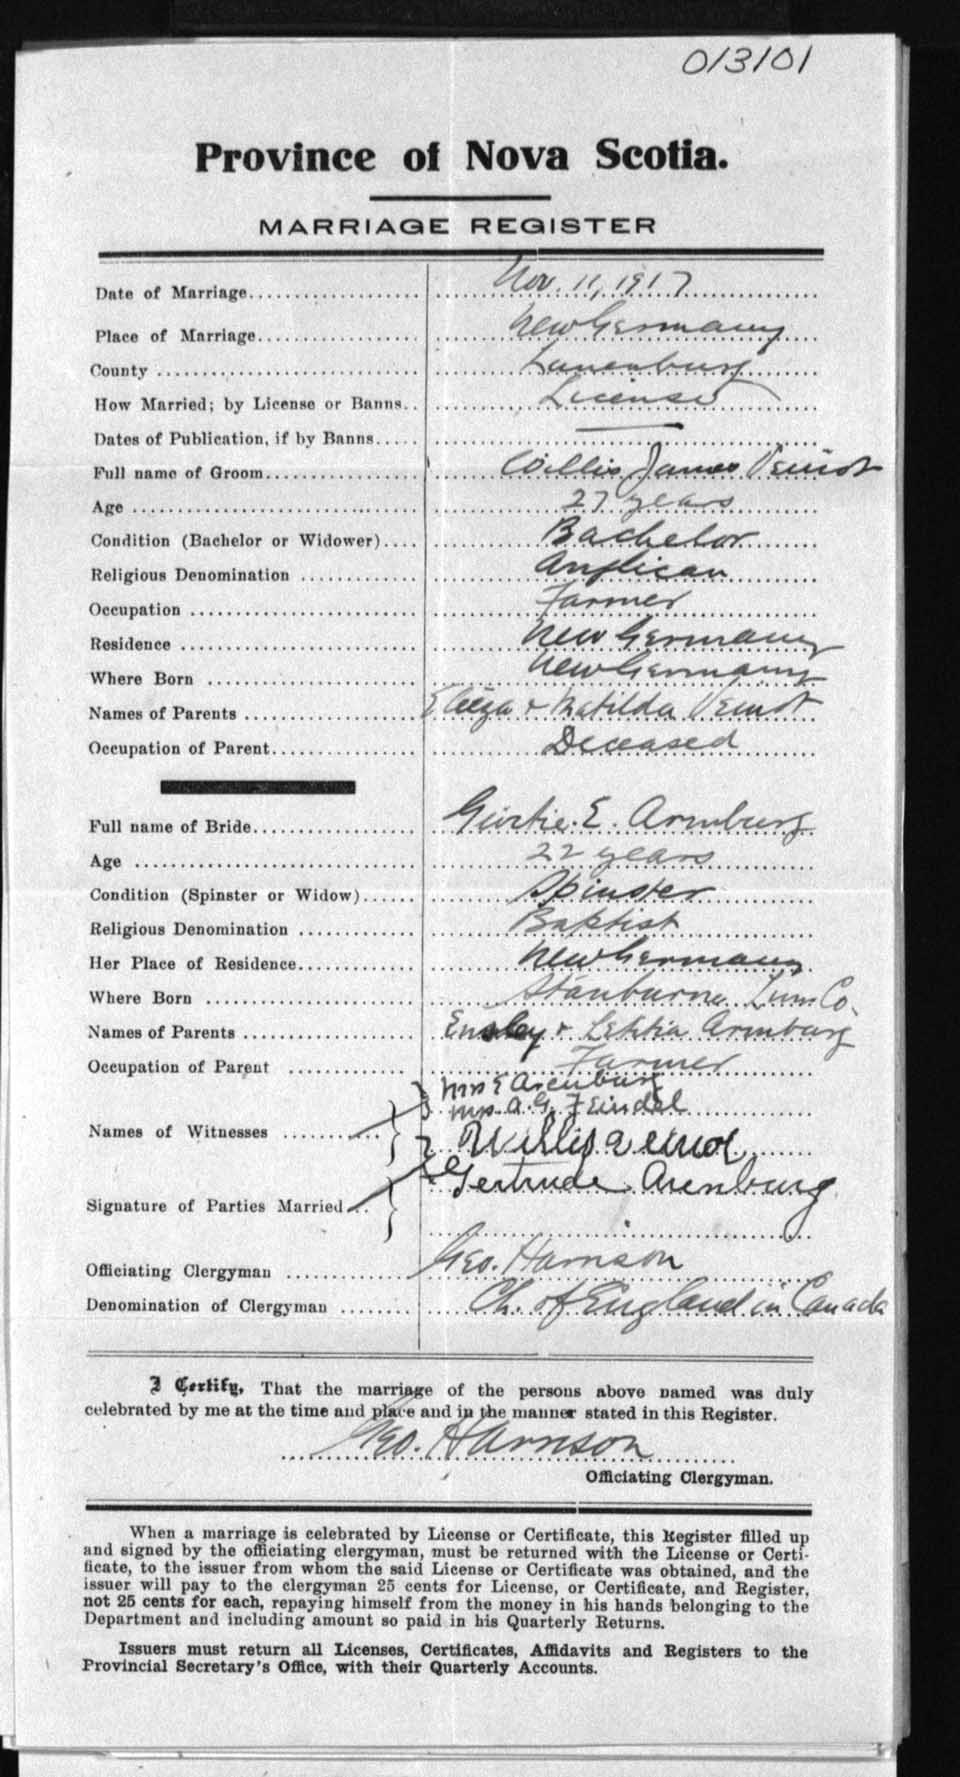 013101
Province of Nova Scotia.
MARRIAGE REGISTER
Date of Marriage Nov. 11, 1917
Place of Marriage New Germany
County Lunenburg
How Married; by License or Banns License
Dates of Publication, if by Banns —
Full name of Groom Willis James Veinot
Age 27 years
Condition (Bachelor or Widower) Bachelor
Religious Denomination Anglican
Occupation Farmer
Residence New Germany
Where Born New Germany
Names of Parents & Matilda Veinot
Occupation of Parent Deceased
Full name of Bride Girtie. E. Arenburg
Age 22 years
Condition (Spinster or Widow) Spinster
Religious Denomination Baptist
Her Place of Residence New Germany
Where Born Stanburne Lun Co.
Names of Parents & Letitia Arenburg
Occupation of Parent Farmer
Mrs E Arenburg
Mrs. A. G. Feindel
Names of Witnesses
Willis Veinot
Gertrude Arenburg
Signature of Parties Married
Officiating Clergyman Geo. Harrison
Denomination of Clergyman Ch. of England in Canada
I Certify, That the marriage of the persons above named was duly
celebrated by me at the time and place and in the manner stated in this Register.
Geo. Harrison
Officiating Clergyman.
When a marriage is celebrated by License or Certificate, this Register filled up
and signed by the officiating clergyman, must be returned with the License or Certi-
ficate, to the issuer from whom the said License or Certificate was obtained, and the
issuer will pay to the clergyman 25 cents for License, or Certificate, and Register,
not 25 cents for each, repaying himself from the money in his hands belonging to the
Department and including amount so paid in his Quarterly Returns.
Issuers must return all Licenses, Certificates, Affidavits and Registers to the
Provincial Secretary's Office, with their Quarterly Accounts.